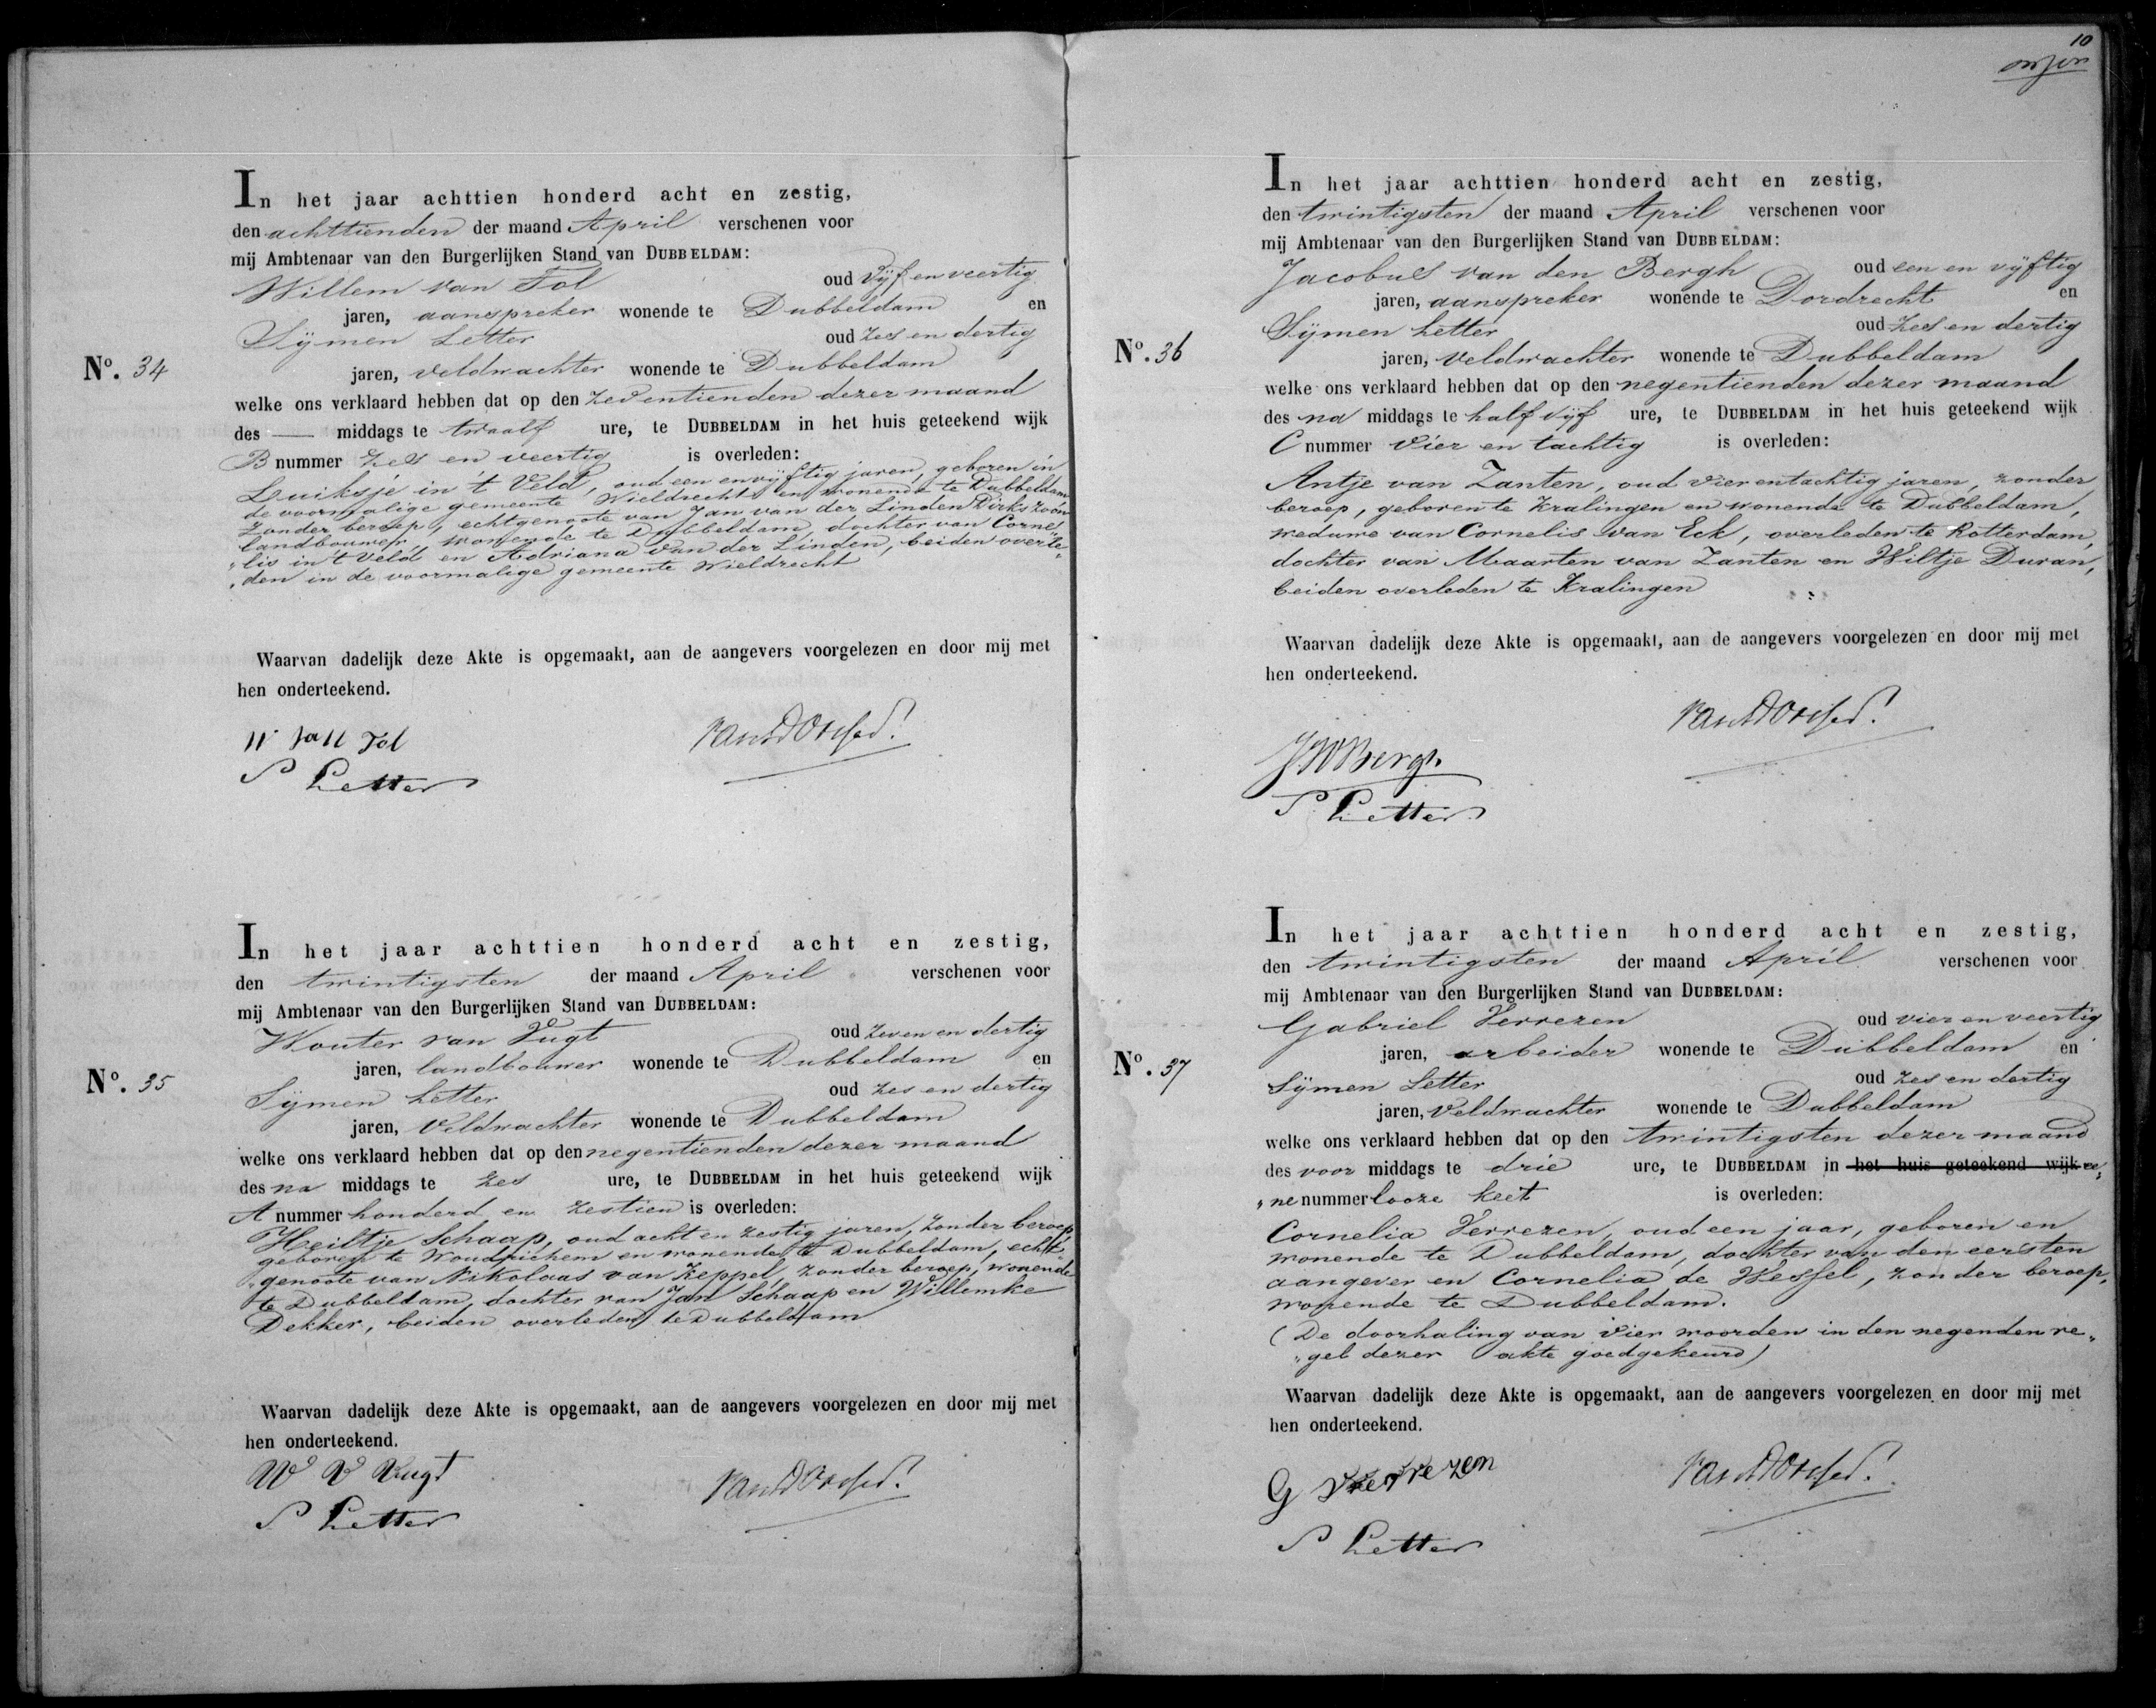 In het jaar achttien honderd acht en zestig,
den achttienden der maand April verschenen voor
mij Ambtenaar van den Burgerlijken Stand van DUBBELDAM:
Willem van Tol oud Vijf en veertig
jaren, aanspreker wonende te Dubbeldam en
Sijmen Letter oud zes en dertig
No. 34
jaren, veldwachter wonende te Dubbeldam
welke ons verklaard hebben dat op den zeventienden dezer maand
des — middags te twaalf ure, te DUBBELDAM in het huis geteekend wijk
B nummer zes en veertig is overleden:
Luiksje in 't Veld, oud een en vijftig jaren, geboren in
de voormalige gemeente Wieldrecht en wonende te Dubbeldam
zonder beroep, echtgenoote van Jan van der Linden Dirkszoon
landbouwer, wonende te Dubbeldam, dochter van Corne„
„lis in 't Veld en Adriana van der Linden, beiden overle„
„den in de voormalige gemeente Wieldrecht
Waarvan dadelijk deze Akte is opgemaakt, aan de aangevers voorgelezen en door mij met
hen onderteekend.
W van Tol
S Letter
In het jaar achttien honderd acht en zestig,
den twintigsten der maand April verschenen voor
mij Ambtenaar van den Burgerlijken Stand van DUBBELDAM:
Wouter van Vugt oud zeven en dertig
jaren, landbouwer wonende te Dubbeldam en
No. 35
Sijmen Letter oud zes en dertig
jaren, Veldwachter wonende te Dubbeldam
welke ons verklaard hebben dat op den negentienden dezer maand
des na middags te zes ure, te DUBBELDAM in het huis geteekend wijk
A nummer honderd en zestien is overleden:
Heiltje Schaap, oud acht en zestig jaren, zonder beroep
geboren te Woudrichem en wonende te Dubbeldam, echt„
„genoote van Nikolaas van Keppel, zonder beroep, wonende
te Dubbeldam, dochter van Jan Schaap en Willemke
Dekker, beiden overleden te Dubbeldam
Waarvan dadelijk deze Akte is opgemaakt, aan de aangevers voorgelezen en door mij met
hen onderteekend.
W V Vugt
S Letter
10
In het jaar achttien honderd acht en zestig,
den twintigsten der maand April verschenen voor
mij Ambtenaar van den Burgerlijken Stand van DUBBELDAM:
Jacobus van den Bergh oud een en vijftig
jaren, aanspreker wonende te Dordrecht en
Sijmen Letter oud zes en dertig
No. 36
jaren, veldwachter wonende te Dubbeldam
welke ons verklaard hebben dat op den negentienden dezer maand
des na middags te half vijf ure, te DUBBELDAM in het huis geteekend wijk
C nummer vier en tachtig is overleden:
Antje van Zanten, oud vier en tachtig jaren, zonder
beroep, geboren te Kralingen en wonende te Dubbeldam,
weduwe van Cornelis van Eck, overleden te Rotterdam,
dochter van Maarten van Zanten en Wiltje Duran,
beiden overleden te Kralingen
Waarvan dadelijk deze Akte is opgemaakt, aan de aangevers voorgelezen en door mij met
hen onderteekend.
S Letter
In het jaar achttien honderd acht en zestig,
den twintigsten der maand April verschenen voor
mij Ambtenaar van den Burgerlijken Stand van DUBBELDAM:
Gabriel Verrezen oud vier en veertig
jaren, arbeider wonende te Dubbeldam en
No. 37
Sijmen Letter oud zes en dertig
jaren, Veldwachter wonende te Dubbeldam
welke ons verklaard hebben dat op den twintigsten dezer maand
des voor middags te drie ure, te DUBBELDAM in het huis geteekend wijk ee„
„ne nummerlooze keet is overleden:
Cornelia Verrezen, oud een jaar, geboren en
wonende te Dubbeldam, dochter van den eersten
aangever en Cornelia de Wessel, zonder beroep,
wonende te Dubbeldam.
(De doorhaling van vier woorden in den negenden re„
„gel dezer akte goedgekeurd)
Waarvan dadelijk deze Akte is opgemaakt, aan de aangevers voorgelezen en door mij met
hen onderteekend.
G Verrezen
S Letter